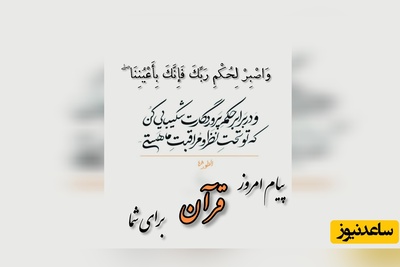 وَاصْبِرْ لِحُكْمِ رَبِّكَ فَإِنَّكَ بِأَعْيُنِنَا ۖ
و در برابر حکم پروردگارت شکیبایی کن
که تو تحتِ نظر و مراقبتِ ما هستی
پیام امروز
قرآن
برای شما
ساعدنیوز